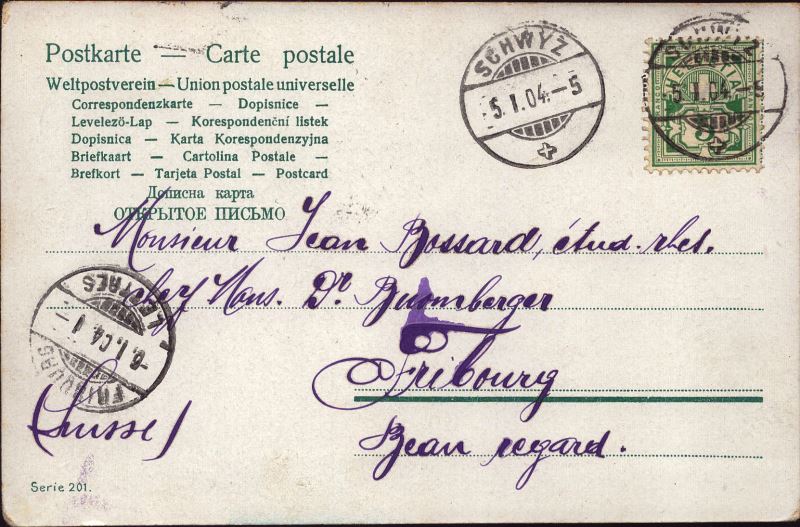 Postkarte — Carte postale
Weltpostverein — Union postale universelle
Correspondenzkarte — Dopisnice —
Levelező-Lap — Korespondenční listek
Dopisnica — Karta Korespondenzyjna
Briefkaart — Cartolina Postale —
Brefkort — Tarjeta Postal — Postcard
Дописна карта
ОТКРЫТОЕ ПИСЬМО
SCHWYZ
5.I.04.-5
HELVETIA
5
5.I.04.-5
Monsieur Jean Bossard, étud. rhet.
chez Mons. Dr. Buomberger
Fribourg
(Suisse)
Beau regard.
FRIBOURG
6.I.04.
LETTRES
Serie 201.